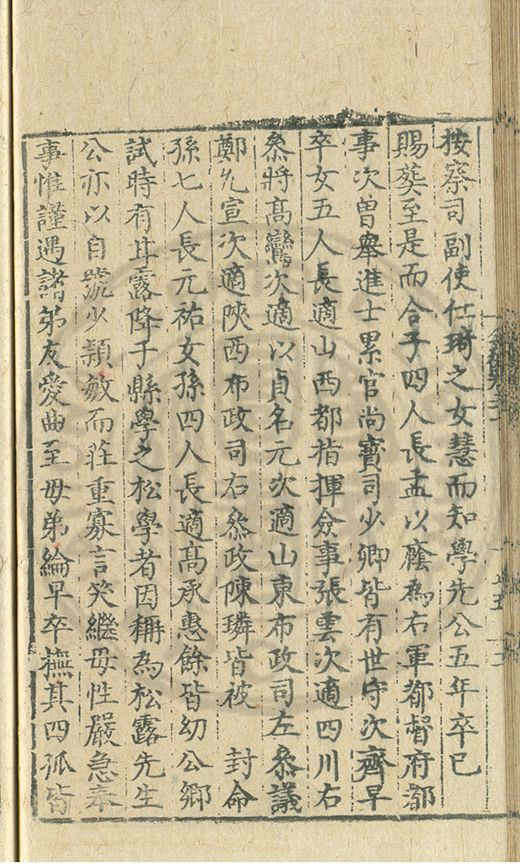 按察司副使仕琦之女慧而知學先公五年卒巳
賜葬至是而合子四人長孟以廕為右軍都督府都
事次曾舉進士累官尚寶司少卿皆有世守次齊早
卒女五人長適山西都指揮僉事張雲次適四川右
叅將高鸞次適以貞名元次適山東布政司左叅議
鄭允宣次適陝西布政司右叅政陳璘皆被 封命
孫七人長元祐女孫四人長適高承惠餘皆幼公鄉
試時有甘露降于縣學之松學者因稱為松露先生
公亦以自號少頴敏而莊重寡言笑繼母性嚴急奉
事惟謹遇諸弟友愛曲至母弟綸早卒撫其四孤皆